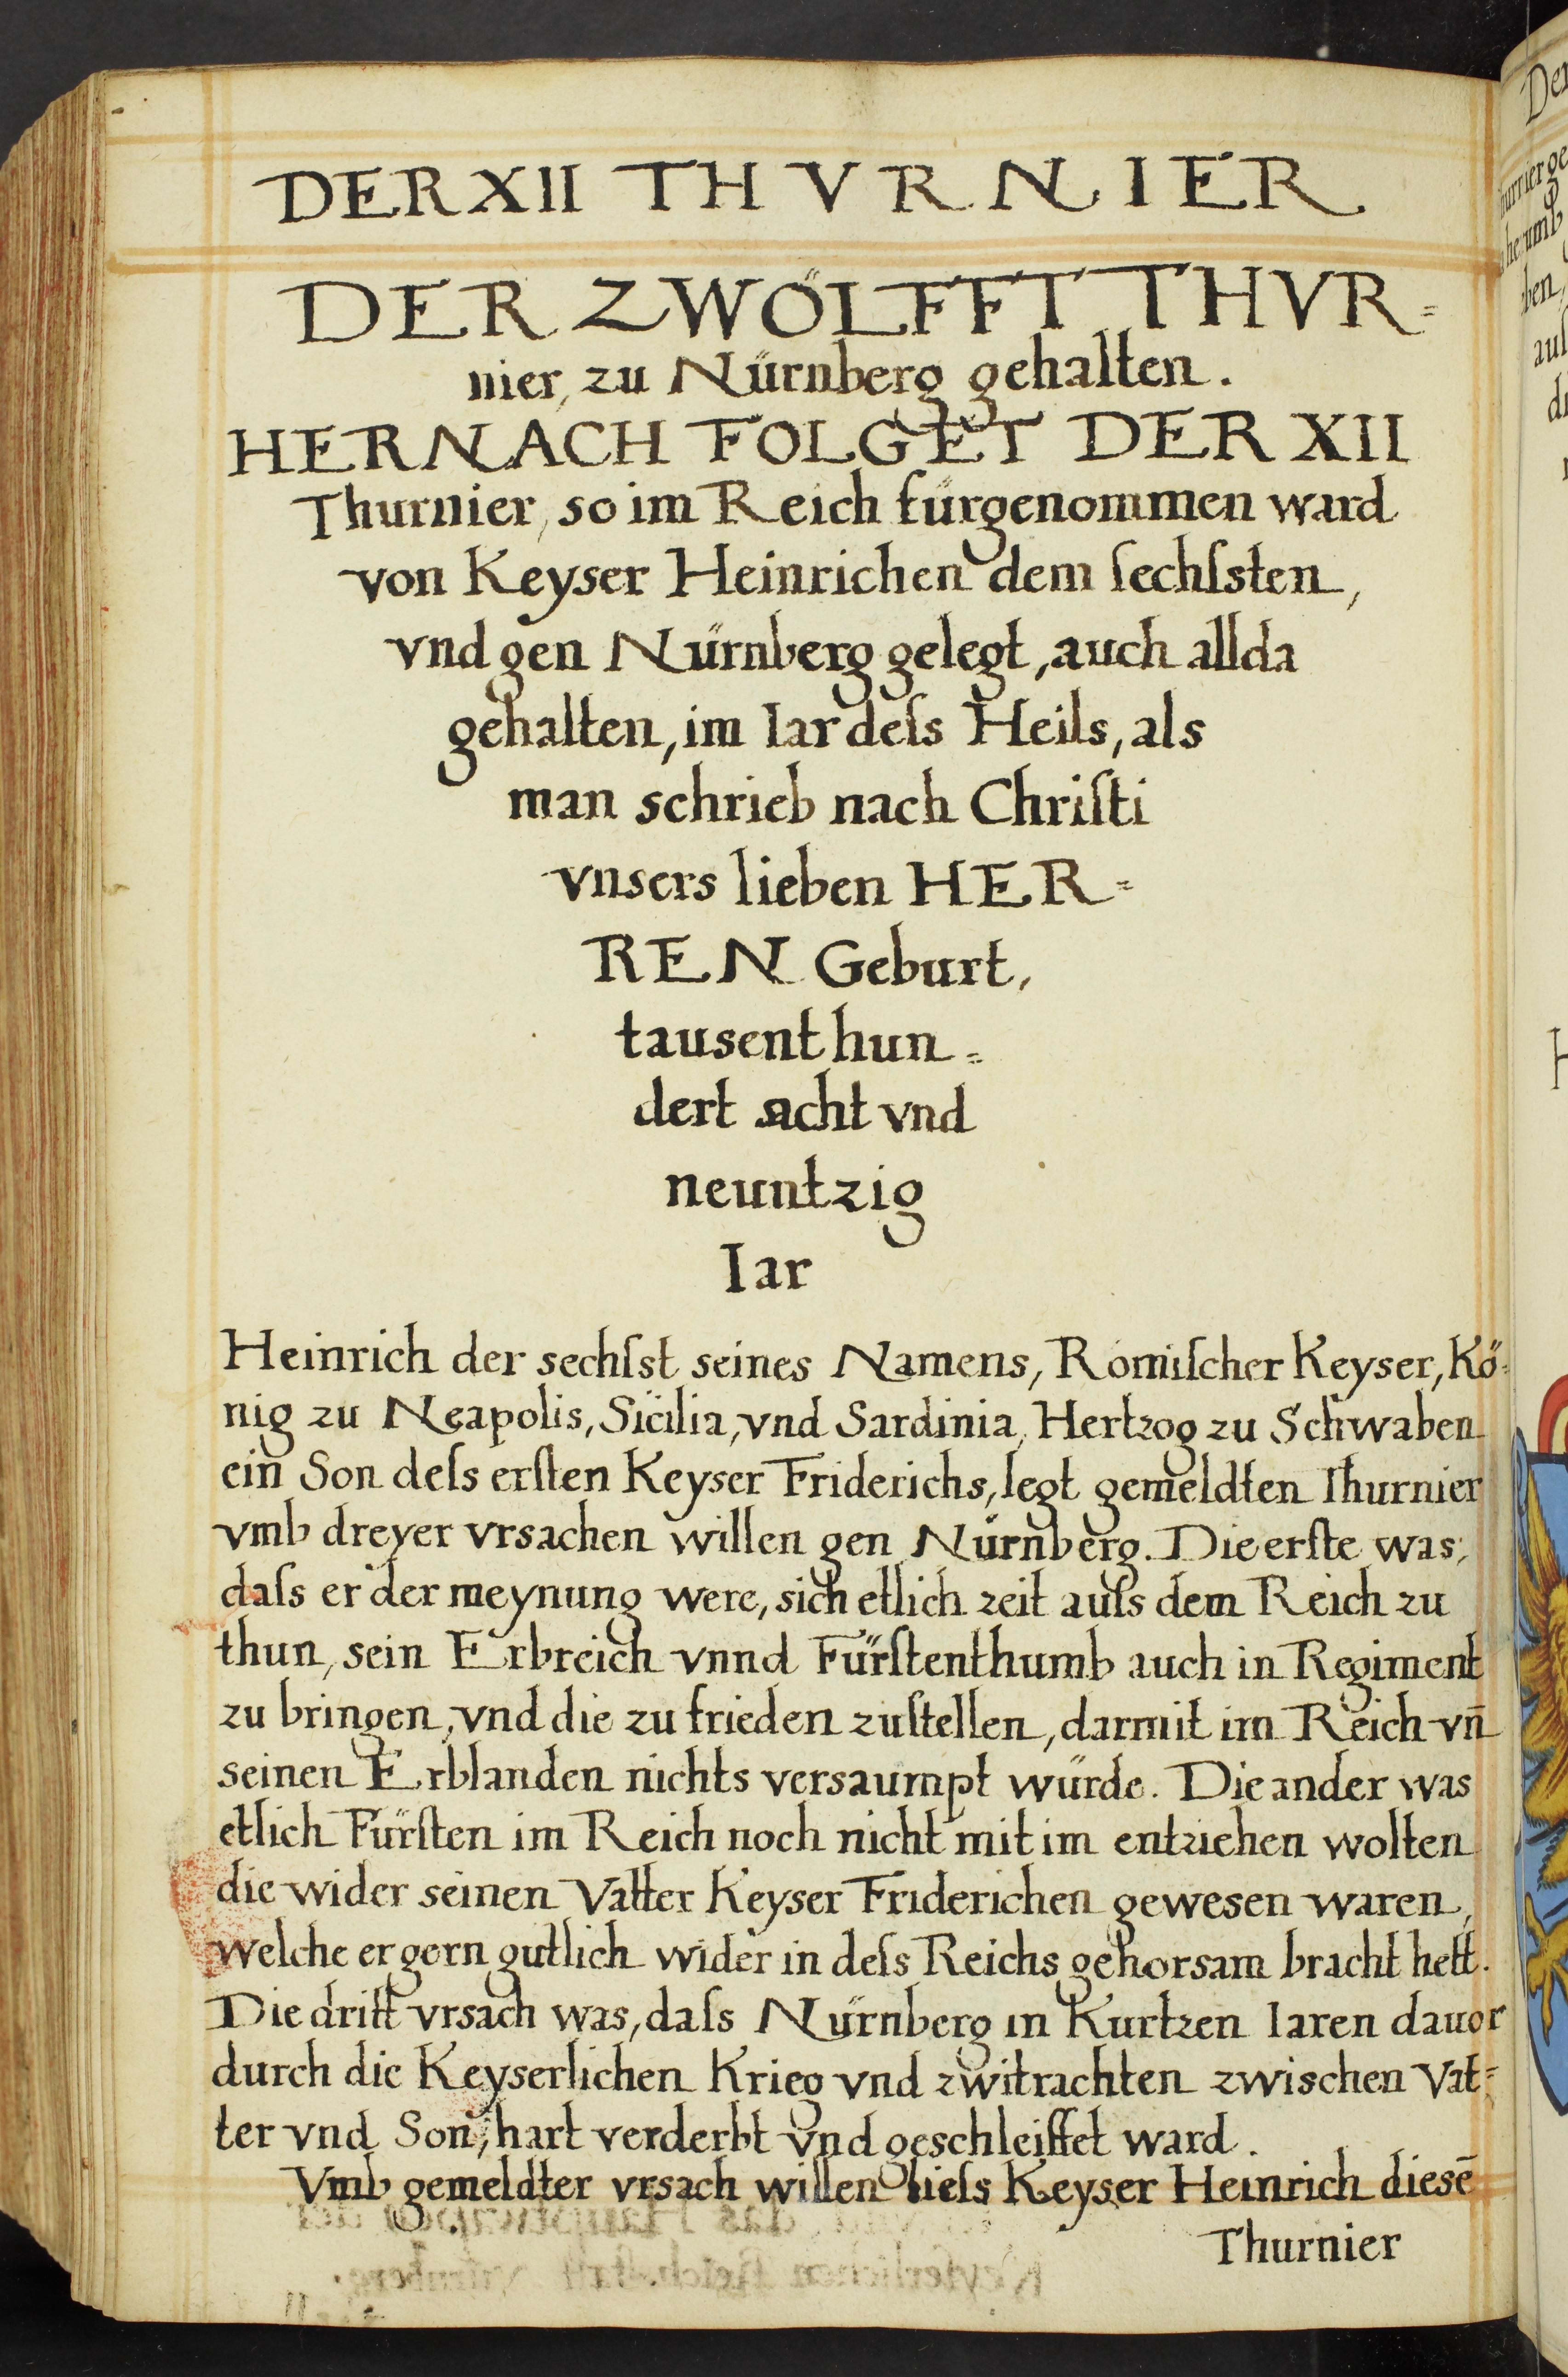 DER XII THVRNIER
DER ZWÖLFFT THVR=
nier, zu Nürnberg gehalten.
HERNACH FOLGET DER XII
Thurnier, so im Reich fürgenommen ward
von Keyser Heinrichen dem ſechſsten,
vnd gen Nürnberg gelegt, auch allda
gehalten, im Iar deſs Heils, als
man schrieb nach Chriſti
vnsers lieben HER=
REN Geburt,
tausent hun=
dert acht vnd
neuntzig
Iar
Heinrich der sechſst seines Namens, Römiſcher Keyser, Kö=
nig zu Neapolis, Sicilia, vnd Sardinia, Hertzog zu Schwaben
ein Son deſs erſten Keyser Friderichs, legt gemeldten Thurnier
vmb dreyer vrsachen willen gen Nürnberg. Die erſte was,
daſs er der meynung were, sich etlich zeit auſs dem Reich zu
thun, sein Erbreich vnnd Fürſtenthumb auch in Regiment
zu bringen, vnd die zu frieden zuſtellen, darmit im Reich vn̄
seinen Erblanden nichts versaumpt würde. Die ander was
etlich Fürſten im Reich noch nicht mit im entziehen wolten
die wider seinen Vatter Keyser Friderichen gewesen waren,
welche er gern gutlich wider in deſs Reichs gehorsam bracht hett.
Die dritt vrsach was, daſs Nürnberg in Kurtzen Iaren dauor
durch die Keyserlichen Krieg vnd zwitrachten zwischen Vat=
ter vnd Son, hart verderbt vnd geschleiffet ward.
Vmb gemeldter vrsach willen lieſs Keyser Heinrich diesē
Thurnier